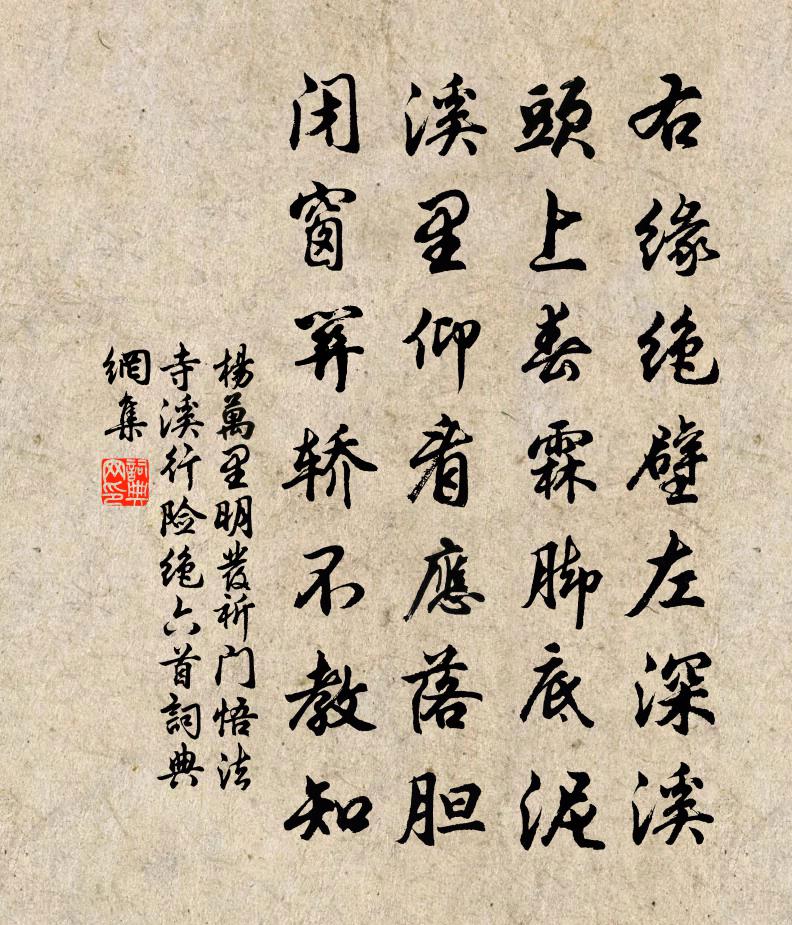 右缘绝壁左深溪
頭上春霖脚底泥
溪里仰看應落胆
闭窗笄轿不教知
楊萬里明發祈门悟法
寺溪行险绝六首詞典
網集
詞典